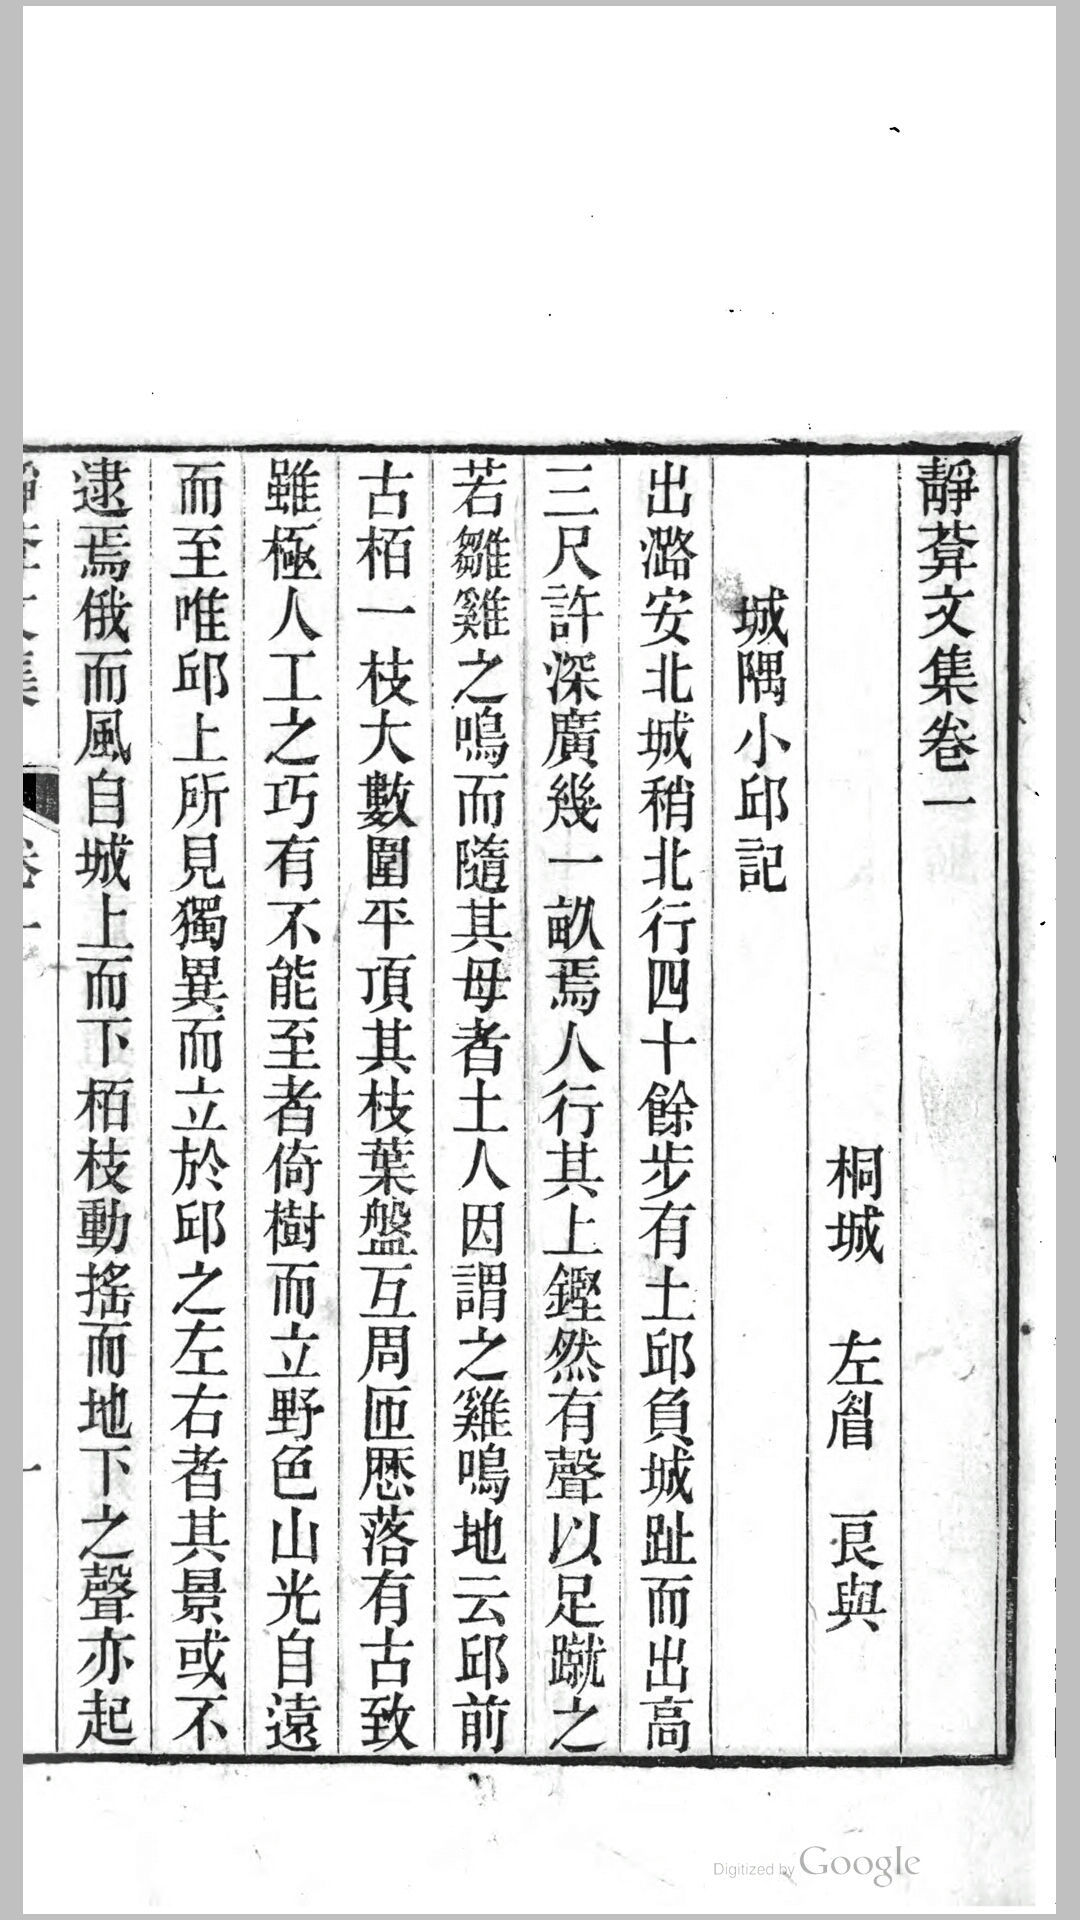 靜葊文集卷一
桐城 左眉 良與
城隅小邱記
出潞安北城稍北行四十餘步有土邱負城趾而出高
三尺許深廣幾一畝焉人行其上鏗然有聲以足蹴之
若雛雞之鳴而隨其母者土人因謂之雞鳴地云邱前
古栢一枝大數圍平頂其枝葉盤互周匝歷落有古致
雖極人工之巧有不能至者倚樹而立野色山光自遠
而至唯邱上所見獨異而立於邱之左右者其景或不
逮焉俄而風自城上而下栢枝動搖而地下之聲亦起
Digitized by Google